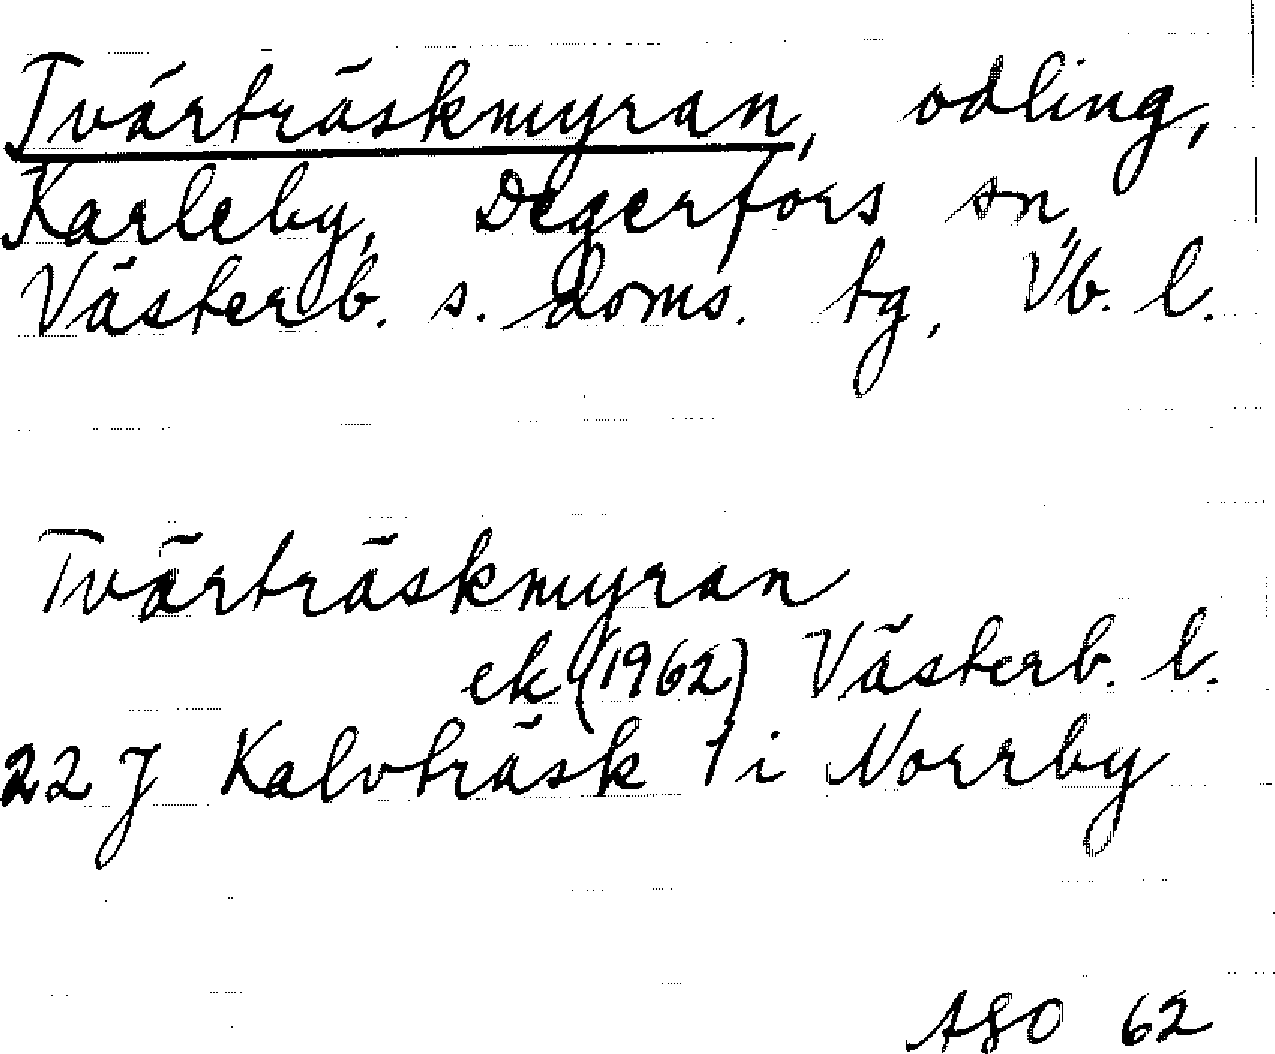 Tvärträskmyran, odling,
Karleby, Degerfors sn,
Västerb. s. doms. tg, Vb. l.
Tvärträskmyran
ek (1962) Västerb. l.
22 J Kalvträsk 1 i Norrby
62